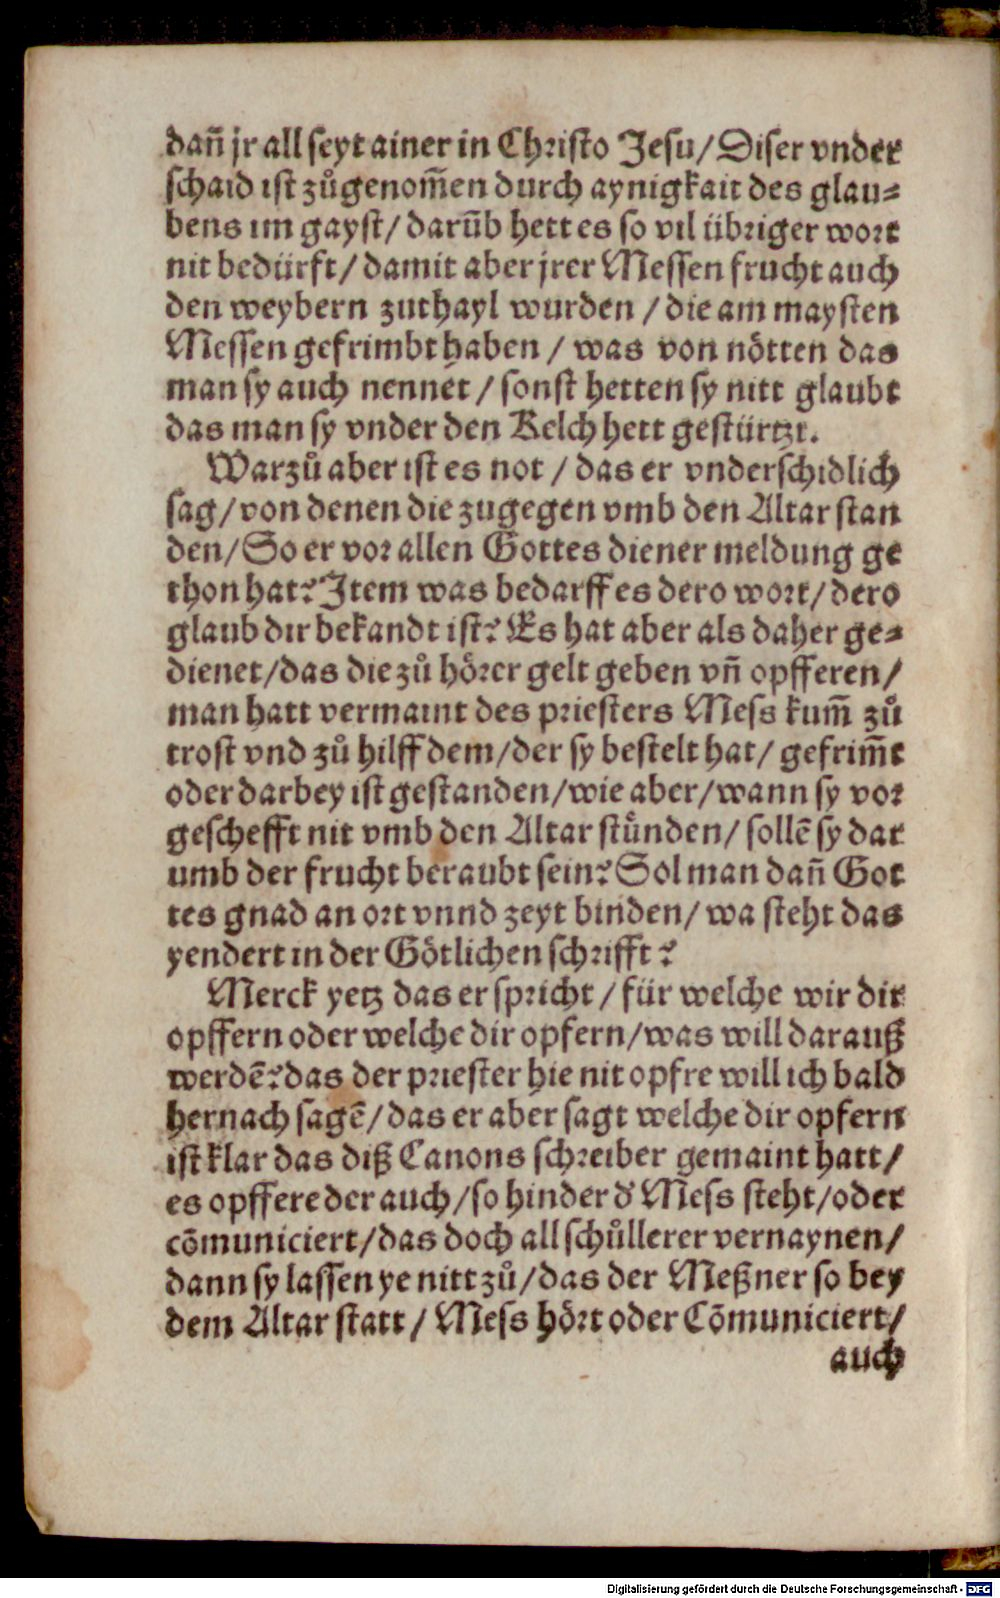 dañ jr all seyt ainer in Christo Jesu/Diser vnder
schaid ist zůgenom̃en durch aynigkait des glau-
bens im gayst/darũb hett es so vil übriger wort
nit bedürft/damit aber jrer Messen frucht auch
den weybern zuthayl wurden/die am maysten
Messen gefrimbt haben/was von nötten das
man sy auch nennet/sonst hetten sy nitt glaubt
das man sy vnder den Kelch hett gestürtzt.
Warzů aber ist es not/das er vnderschidlich
sag/von denen die zugegen vmb den Altar stan
den/So er vor allen Gottes diener meldung ge
thon hat? Item was bedarff es dero wort/dero
glaub dir bekandt ist? Es hat aber als daher ge-
dienet/das die zů hörer gelt geben vñ opfferen/
man hatt vermaint des priesters Mess kum̃ zů
trost vnd zů hilff dem/der sy bestelt hat/gefrim̃t
oder darbey ist gestanden/wie aber/wann sy vor
geschefft nit vmb den Altar stůnden/sollẽ sy dar
umb der frucht beraubt sein? Sol man dañ Got
tes gnad an ort vnnd zeyt binden/wa steht das
yendert in der Götlichen schrifft?
Merck yetz das er spricht/für welche wir dir
opffern oder welche dir opfern/was will darauß
werdẽ? das der priester hie nit opfre will ich bald
hernach sagẽ/das er aber sagt welche dir opfern
ist klar das diß Canons schreiber gemaint hatt/
es opffere der auch/so hinder d' Mess steht/oder
cõmuniciert/das doch all schůllerer vernaynen/
dann sy lassen ye nitt zů/das der Meßner so bey
dem Altar statt/Mess hört oder Cõmuniciert/
auch
Digitalisierung gefördert durch die Deutsche Forschungsgemeinschaft - DFG